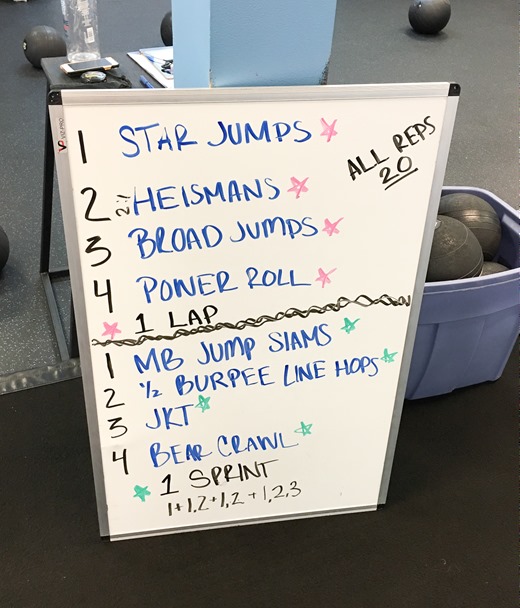 1 STAR JUMPS
ALL REPS
20
2 2:1 HEISMANS
3 BROAD JUMPS
4 POWER ROLL
1 LAP
1 MB JUMP SLAMS
2 1/2 BURPEE LINE HOPS
3 JKT
4 BEAR CRAWL
1 SPRINT
1+1,2+1,2+1,2,3